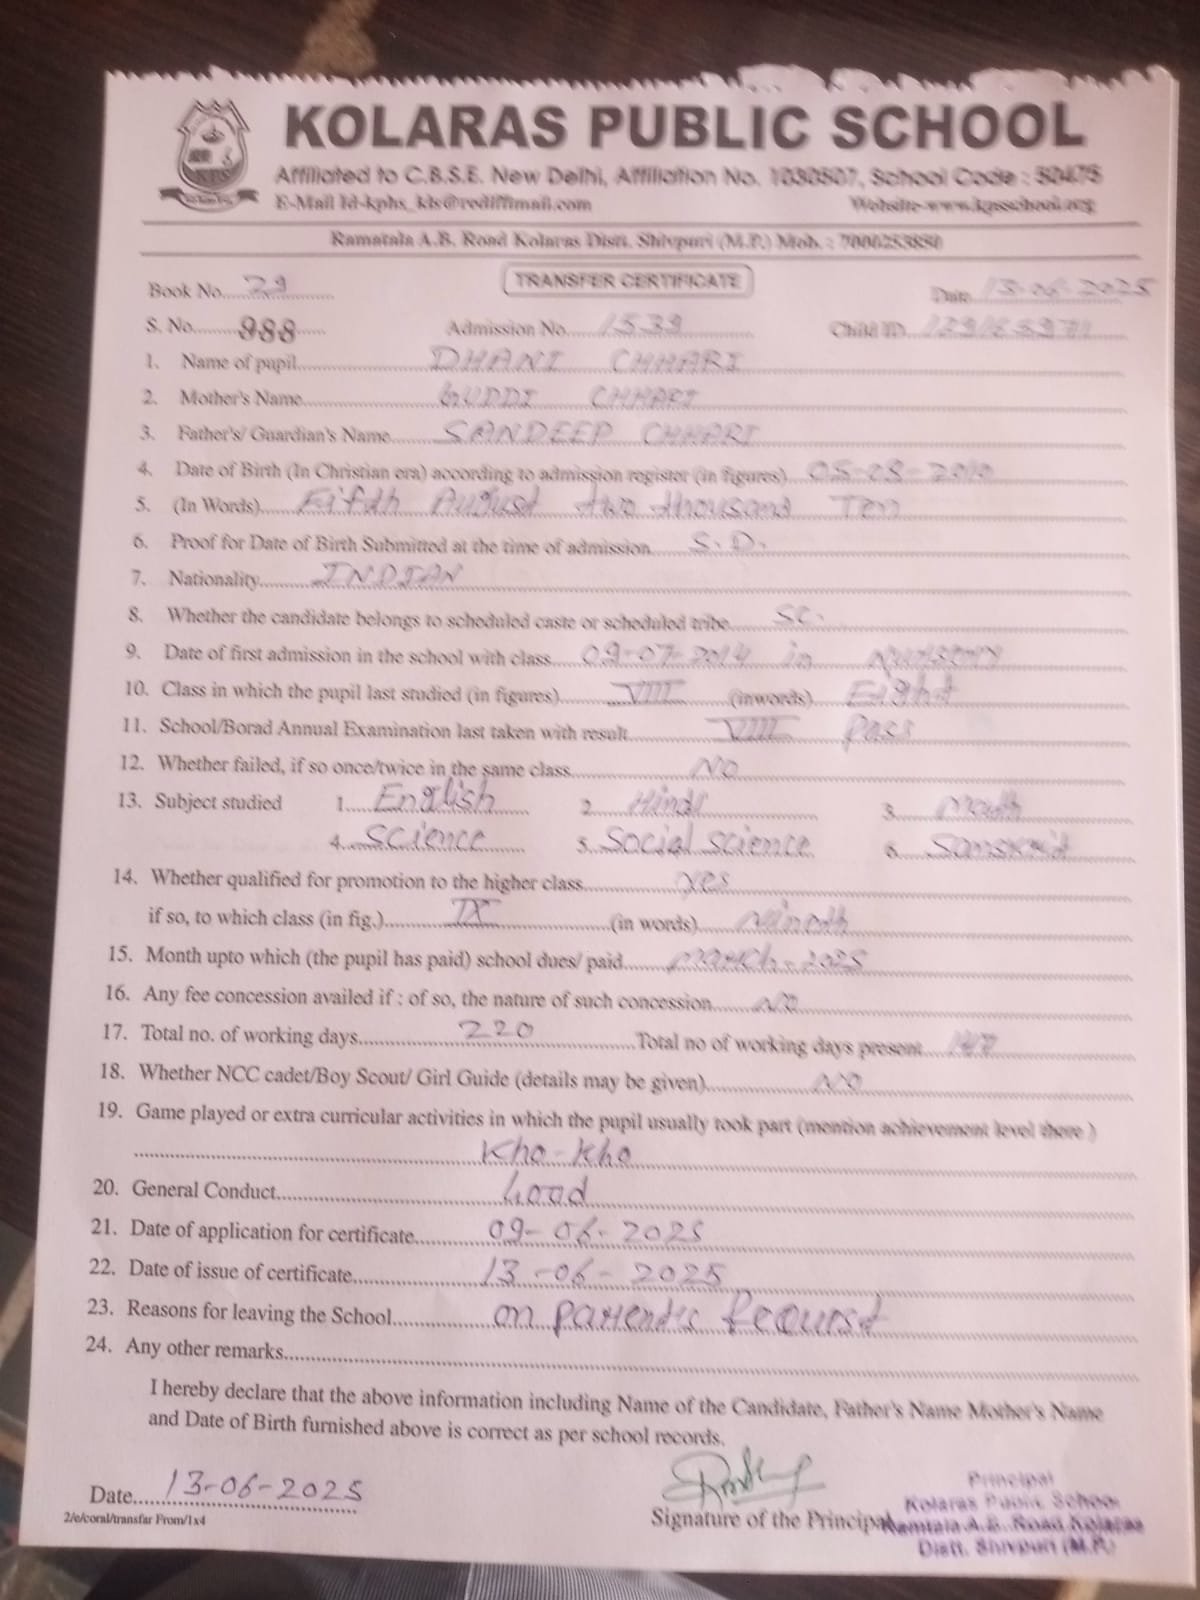 KOLARAS PUBLIC SCHOOL
Affiliated to C.B.S.E. New Delhi, Affiliation No. 1030507, School Code : 50475
E-Mail Id-kphs_kls@rediffmail.com Website-www.kpsschool.org
Ramatala A.B. Road Kolaras Distt. Shivpuri (M.P.) Mob. : 7000253880
TRANSFER CERTIFICATE
Book No. 29 Date 13-06-2025
S. No. 988 Admission No. 1539 Child ID
1. Name of pupil DHANI CHHARI
2. Mother's Name GUDDI CHHARI
3. Father's/ Guardian's Name SANDEEP CHHARI
4. Date of Birth (In Christian era) according to admission register (in figures) 05-08-2010
5. (In Words) Fifth August two thousand Ten
6. Proof for Date of Birth Submitted at the time of admission S.D.
7. Nationality INDIAN
8. Whether the candidate belongs to scheduled caste or scheduled tribe SC.
9. Date of first admission in the school with class 09-07-2014 in Nursery
10. Class in which the pupil last studied (in figures) VIII (inwords) Eight
11. School/Borad Annual Examination last taken with result VIII Pass
12. Whether failed, if so once/twice in the same class NO
13. Subject studied 1. English 2. Hindi 3. Math
4. Science 5. Social science 6. Sanskrit
14. Whether qualified for promotion to the higher class yes
if so, to which class (in fig.) IX (in words) Nineth
15. Month upto which (the pupil has paid) school dues/ paid March-2025
16. Any fee concession availed if : of so, the nature of such concession NO
17. Total no. of working days 220 Total no of working days present
18. Whether NCC cadet/Boy Scout/ Girl Guide (details may be given) NO
19. Game played or extra curricular activities in which the pupil usually took part (mention achievement level there )
Kho-Kho
20. General Conduct Good
21. Date of application for certificate 09-06-2025
22. Date of issue of certificate 13-06-2025
23. Reasons for leaving the School on parents Request
24. Any other remarks
I hereby declare that the above information including Name of the Candidate, Father's Name Mother's Name
and Date of Birth furnished above is correct as per school records.
Date 13-06-2025
2/e/coral/transfar From/1x4
Signature of the Principal
Principal
Kolaras Public School
Ramtala A.B. Road Kolaras
Distt. Shivpuri (M.P.)